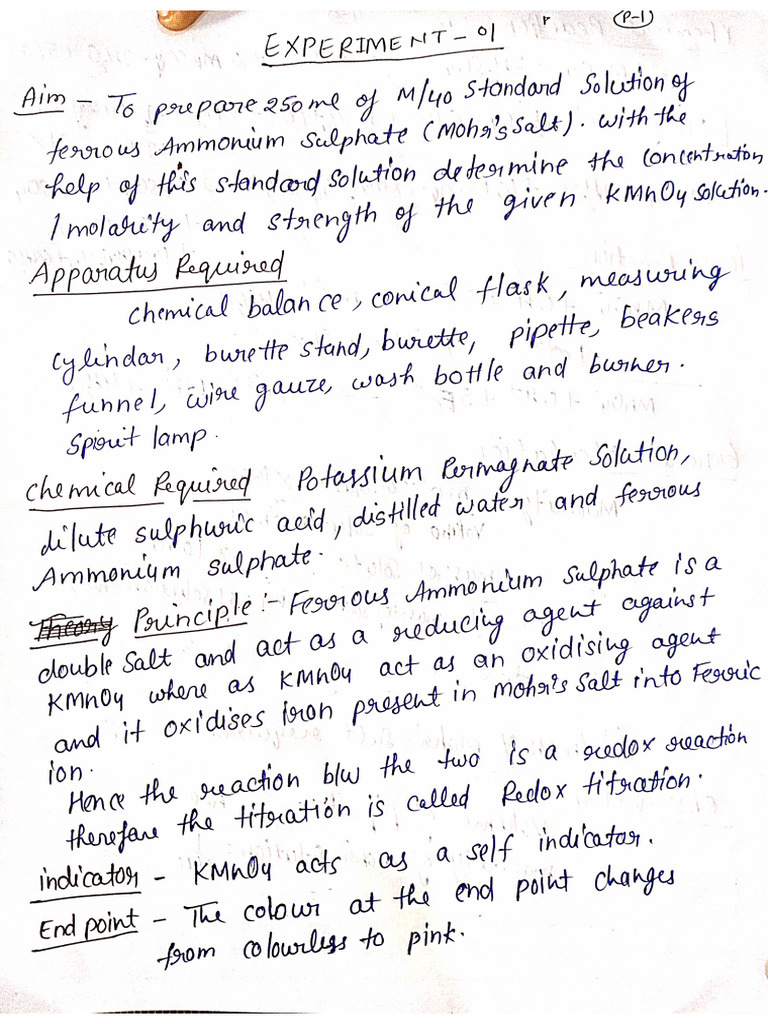 P-1
EXPERIMENT - 01
Aim - To prepare 250 ml of M/40 Standard Solution of
ferrous Ammonium Sulphate (Mohr's Salt). with the
help of this standard solution determine the concentration
/ molarity and strength of the given KMnO4 solution.
Apparatus Required
Chemical balance, conical flask, measuring
cylindar, burette stand, burette, pipette, beakers
funnel, wire gauze, wash bottle and burner.
Spirit lamp.
Chemical Required Potassium Permagnate Solution,
dilute sulphuric acid, distilled water and ferrous
Ammonium sulphate.
Theory Principle :- Ferrous Ammonium Sulphate is a
double Salt and act as a reducing agent against
KMnO4 where as KMnO4 act as an oxidising agent
and it oxidises iron present in Mohr's Salt into Ferric
ion.
Hence the reaction b/w the two is a redox reaction
therefore the titration is called Redox titration.
indicator - KMnO4 acts as a self indicator.
End point - The colour at the end point changes
from colourless to pink.